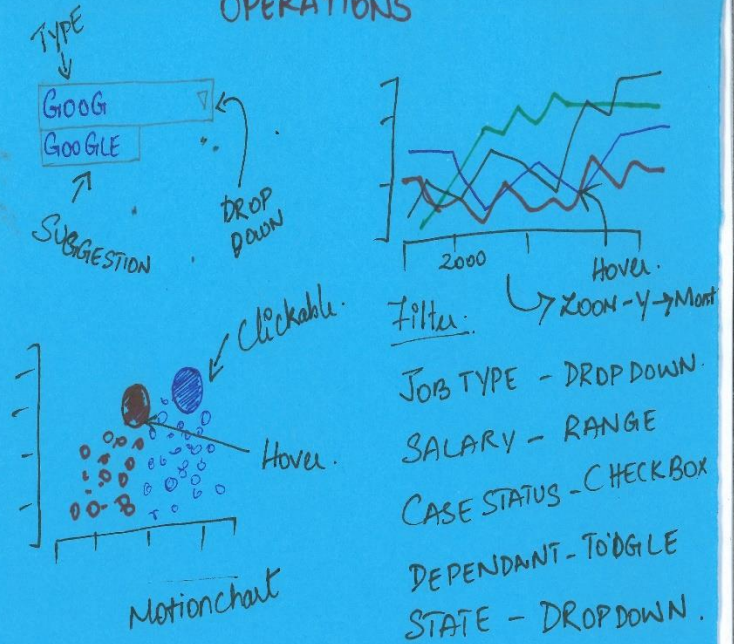 OPERATIONS
TYPE
GOOG
GOOGLE
SUGGESTION
DROP
DOWN
2000
Hover.
ZOOM-Y→Mont
Clickable.
Hover.
Motionchart
Filter:
JOB TYPE - DROPDOWN.
SALARY - RANGE
CASE STATUS - CHECKBOX
DEPENDANT - TOOGLE
STATE - DROPDOWN.